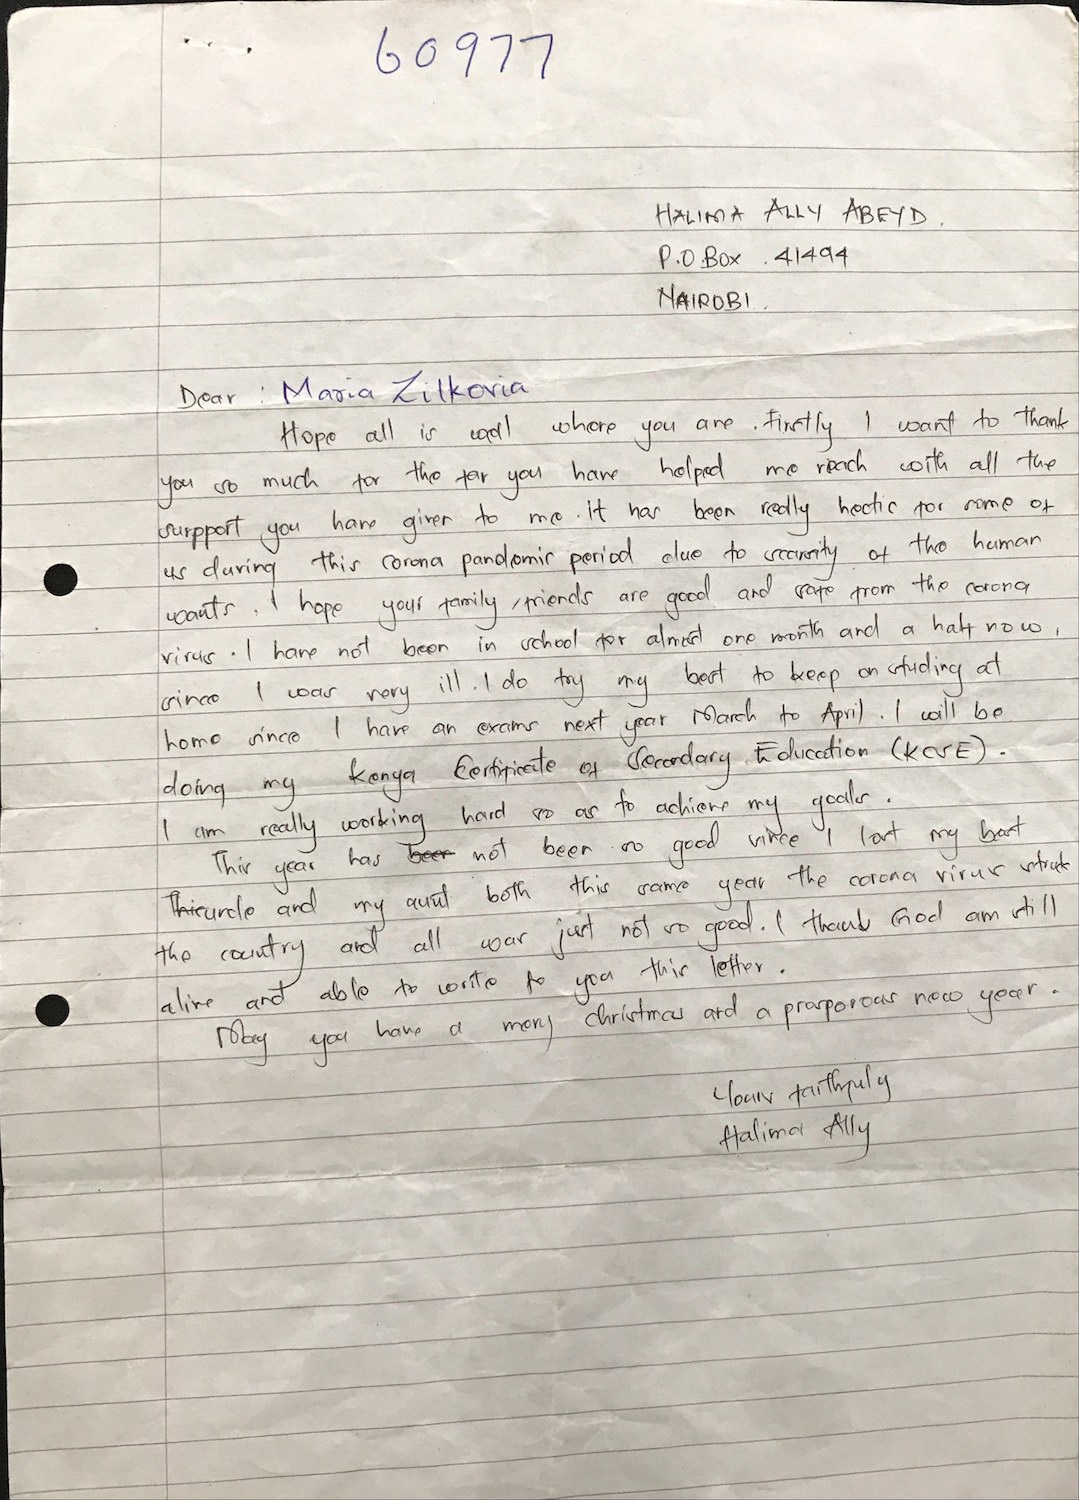 60977
HALIMA ALLY ABEYD.
P.O.Box . 41494
NAIROBI.
Dear : Maria Zilkovia
Hope all is well where you are . Firstly I want to thank
you so much for the far you have helped me reach with all the
surpport you have given to me . It has been really hectic for some of
us during this corona pandemic period due to scarsity of the human
wants . I hope your family , friends are good and safe from the corona
virus . I have not been in school for almost one month and a half now ,
since I was very ill . I do try my best to keep on studing at
home since I have an exams next year March to April . I will be
doing my Kenya Certificate of Secondary Education (KCSE) .
I am really working hard so as to achieve my goals .
This year has been not been so good since I lost my best
uncle and my aunt both this same year the corona virus struk
the country and all was just not so good . I thank God am still
alive and able to write to you this letter .
May you have a merry christmas and a prosporous new year .
Yours faithfuly
Halima Ally